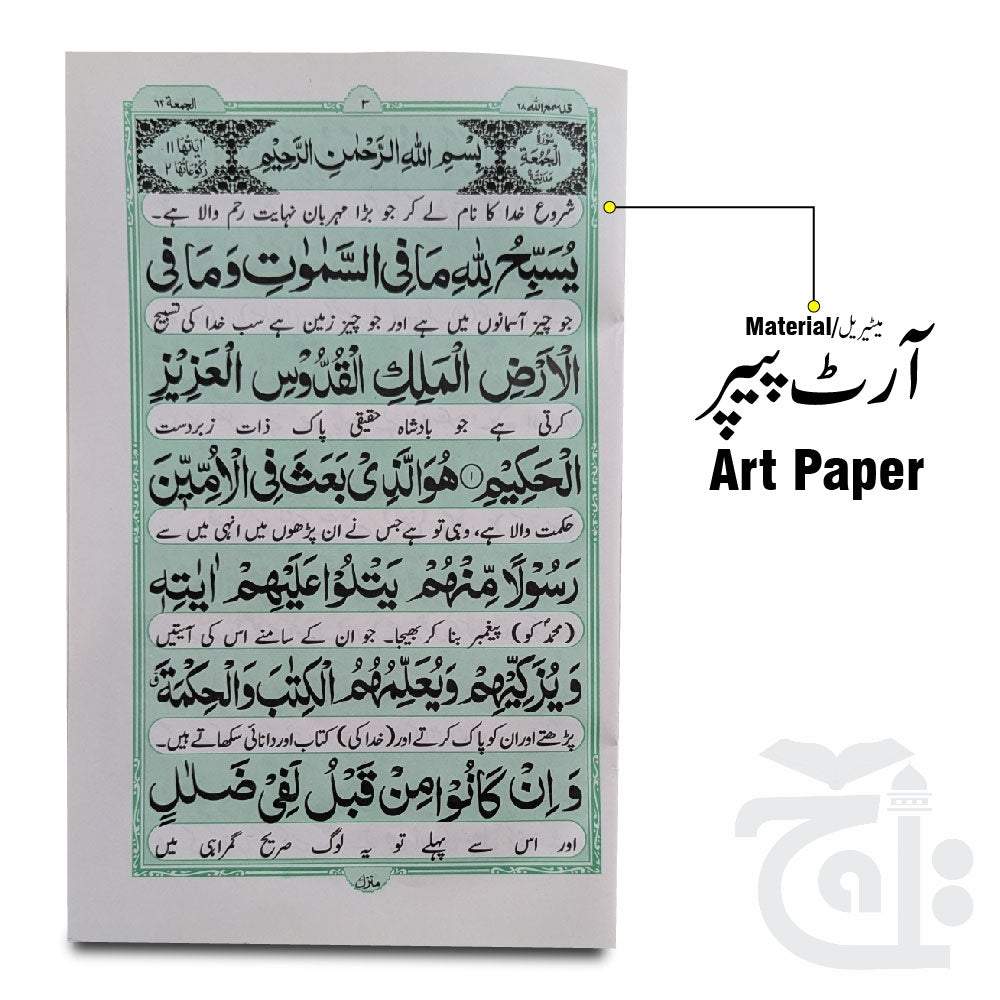 قد سمع الله ٢٨
٣
الجمعة ٦٢
سُورَةُ الْجُمُعَةِ مَدَنِيَّةٌ
بِسْمِ اللهِ الرَّحْمٰنِ الرَّحِيْمِ
اٰيَاتُهَا ١١
رُكُوْعَاتُهَا ٢
شروع خدا کا نام لے کر جو بڑا مہربان نہایت رحم والا ہے۔
يُسَبِّحُ لِلّٰهِ مَا فِي السَّمٰوٰتِ وَمَا فِي
جو چیز آسمانوں میں ہے اور جو چیز زمین ہے سب خدا کی تسبیح
الْاَرْضِ الْمَلِكِ الْقُدُّوْسِ الْعَزِيْزِ
کرتی ہے جو بادشاہ حقیقی پاک ذات زبردست
الْحَكِيْمِ ۱ هُوَ الَّذِيْ بَعَثَ فِي الْاُمِّيّٖنَ
حکمت والا ہے، وہی تو ہے جس نے ان پڑھوں میں انہی میں سے
رَسُوْلًا مِّنْهُمْ يَتْلُوْا عَلَيْهِمْ اٰيٰتِهٖ
(محمدؐ کو) پیغمبر بنا کر بھیجا۔ جو ان کے سامنے اس کی آیتیں
وَيُزَكِّيْهِمْ وَيُعَلِّمُهُمُ الْكِتٰبَ وَالْحِكْمَةَ ۗ
پڑھتے اور ان کو پاک کرتے اور (خدا کی) کتاب اور دانائی سکھاتے ہیں۔
وَاِنْ كَانُوْا مِنْ قَبْلُ لَفِيْ ضَلٰلٍ
اور اس سے پہلے تو یہ لوگ صریح گمراہی میں
Material/میٹیریل
آرٹ پیپر
Art Paper